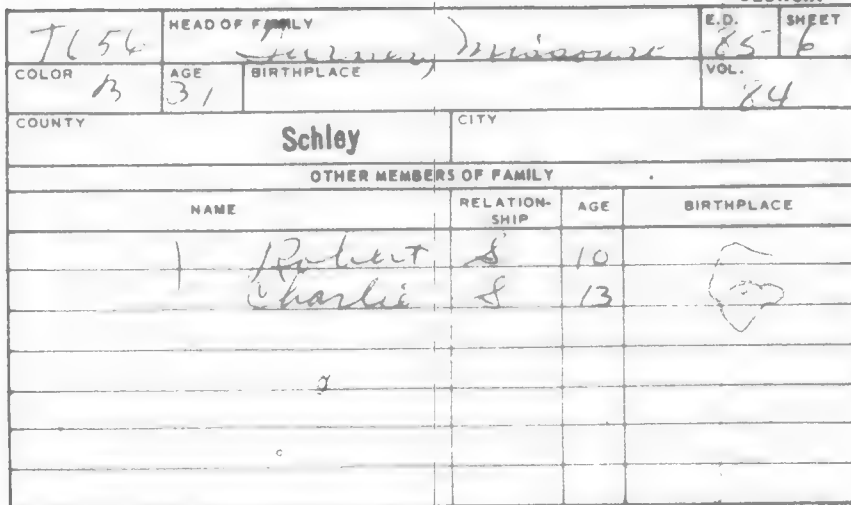 T656 HEAD OF FAMILY Turner, Missouri E.D. 85 SHEET 6
COLOR B AGE 31 BIRTHPLACE VOL. 84
COUNTY Schley CITY
OTHER MEMBERS OF FAMILY
NAME RELATION-SHIP AGE BIRTHPLACE
Robert S 10
Charlie S 13